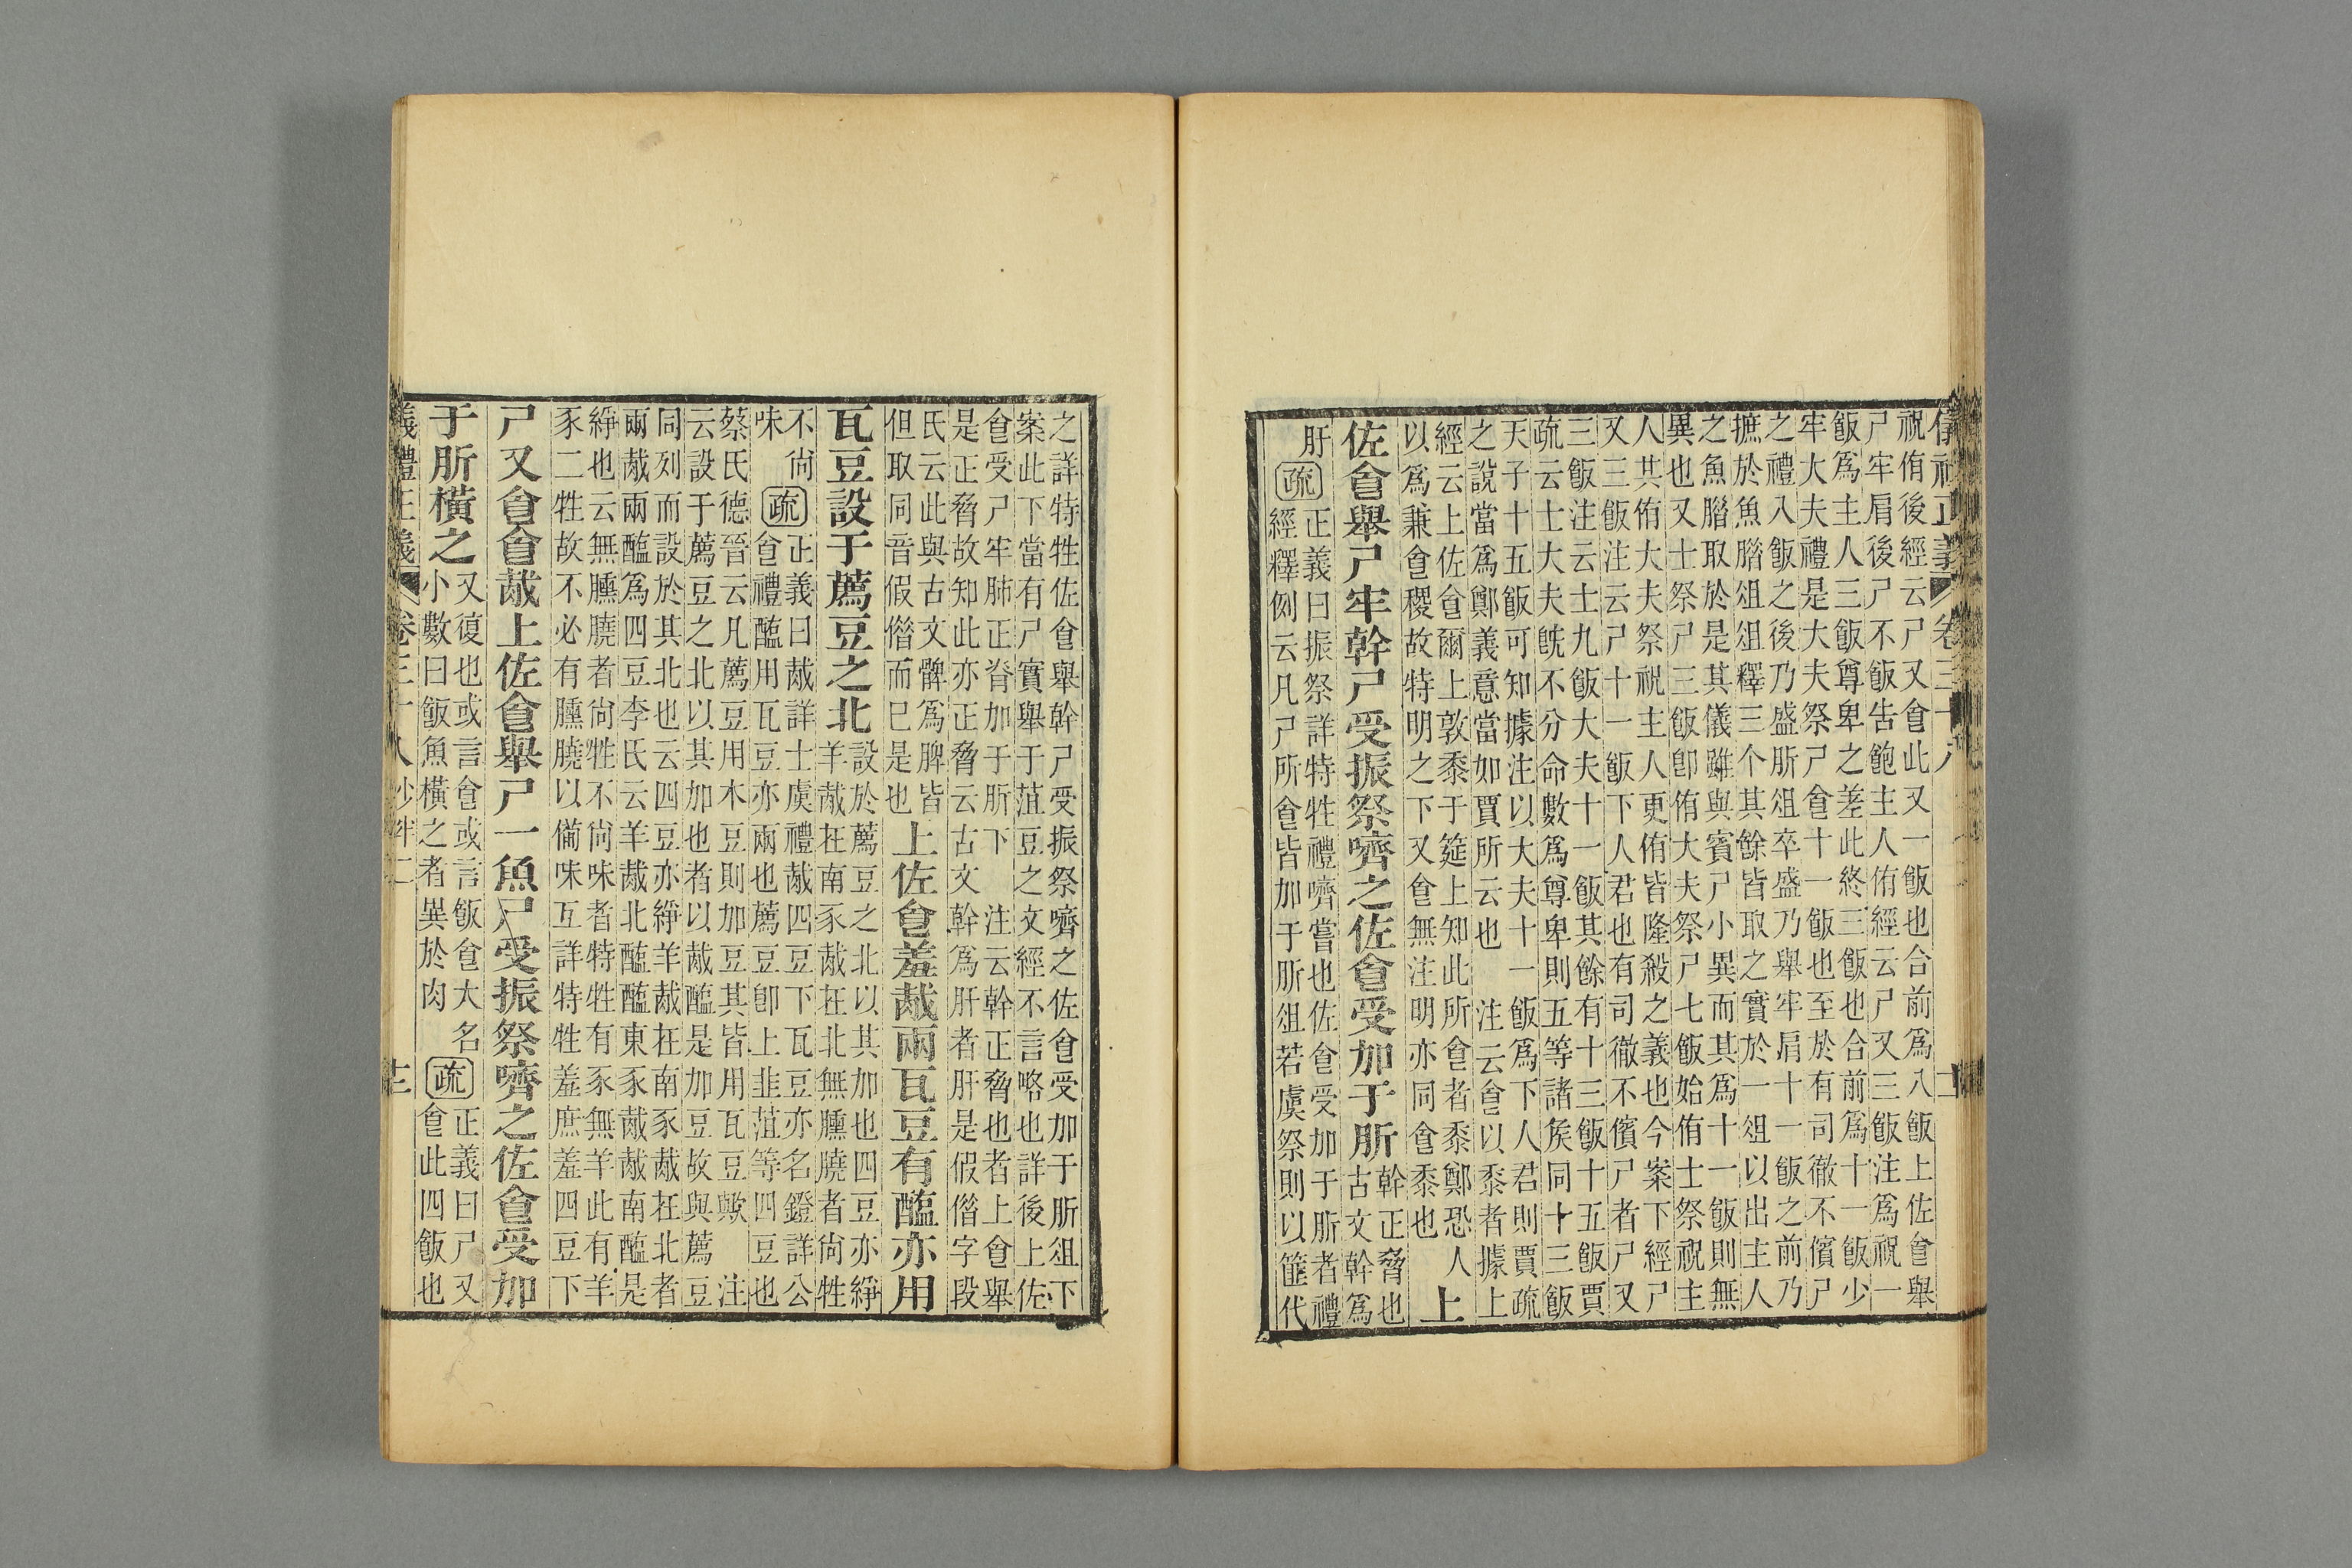 儀禮正義 卷三十八
祝侑後經云尸又㑹此又一飯也合前爲八飯上佐㑹舉
尸牢肩後尸不飯告飽主人侑經云尸又三飯注爲祝一
飯爲主人三飯尊卑之差此終三飯也合前爲十一飯少
牢大夫禮是大夫祭尸㑹十一飯也至於有司徹不儐尸
之禮八飯之後乃盛肵俎卒盛乃舉牢肩十一飯之前乃
摭於魚腊俎俎釋三个其餘皆取之實於一俎以出主人
之魚腊取於是其儀雖與賓尸小異而其爲十一飯則無
異也又士祭尸三飯卽侑大夫祭尸七飯始侑士祭祝主
人其侑大夫祭祝主人更侑皆隆殺之義也今案下經尸
又三飯注云尸十一飯下人君也有司徹不儐尸者尸又
三飯注云士九飯大夫十一飯其餘有十三飯十五飯賈
疏云士大夫旣不分命數爲尊卑則五等諸矦同十三飯
天子十五飯可知據注以大夫十一飯爲下人君則賈疏
之說當爲鄭義意當如賈所云也 注云㑹以黍者據上
經云上佐㑹爾上敦黍于筵上知此所㑹者黍鄭恐人
以爲兼㑹稷故特明之下又㑹無注明亦同㑹黍也
上
佐㑹舉尸牢幹尸受振祭嚌之佐㑹受加于肵
幹正脅也
古文幹爲
肝
疏
正義曰振祭詳特牲禮嚌嘗也佐㑹受加于肵者禮
經釋例云凡尸所㑹皆加于肵俎若虞祭則以篚代
之詳特牲佐㑹舉幹尸受振祭嚌之佐㑹受加于肵俎下
案此下當有尸實舉于菹豆之文經不言略也詳後上佐
㑹受尸牢肺正脊加于肵下 注云幹正脅也者上㑹舉
是正脅故知此亦正脅云古文幹爲肝者肝是假偺字段
氏云此與古文髀爲脾皆
但取同音假偺而已是也
上佐㑹羞胾兩瓦豆有醢亦用
瓦豆設于薦豆之北
設於薦豆之北以其加也四豆亦綪
羊胾在南豕胾在北無臐膮者尙牲
不尙
味
疏
正義曰胾詳士虞禮胾四豆下瓦豆亦名鐙詳公
㑹禮醢用瓦豆亦兩也薦豆卽上韭菹等四豆也
蔡氏德晉云凡薦豆用木豆則加豆其皆用瓦豆歟 注
云設于薦豆之北以其加也者以胾醢是加豆故與薦豆
同列而設於其北也云四豆亦綪羊胾在南豕胾在北者
兩胾兩醢爲四豆李氏云羊胾北醢醢東豕胾胾南醢是
綪也云無臐膮者尙牲不尙味者特牲有豕無羊此有羊
豕二牲故不必有臐膮以僃味互詳特牲羞庶羞四豆下
尸又㑹㑹胾上佐㑹舉尸一魚尸受振祭嚌之佐㑹受加
于肵橫之
又復也或言㑹或言飯㑹大名
小數曰飯魚橫之者異於肉
疏
正義曰尸又
㑹此四飯也